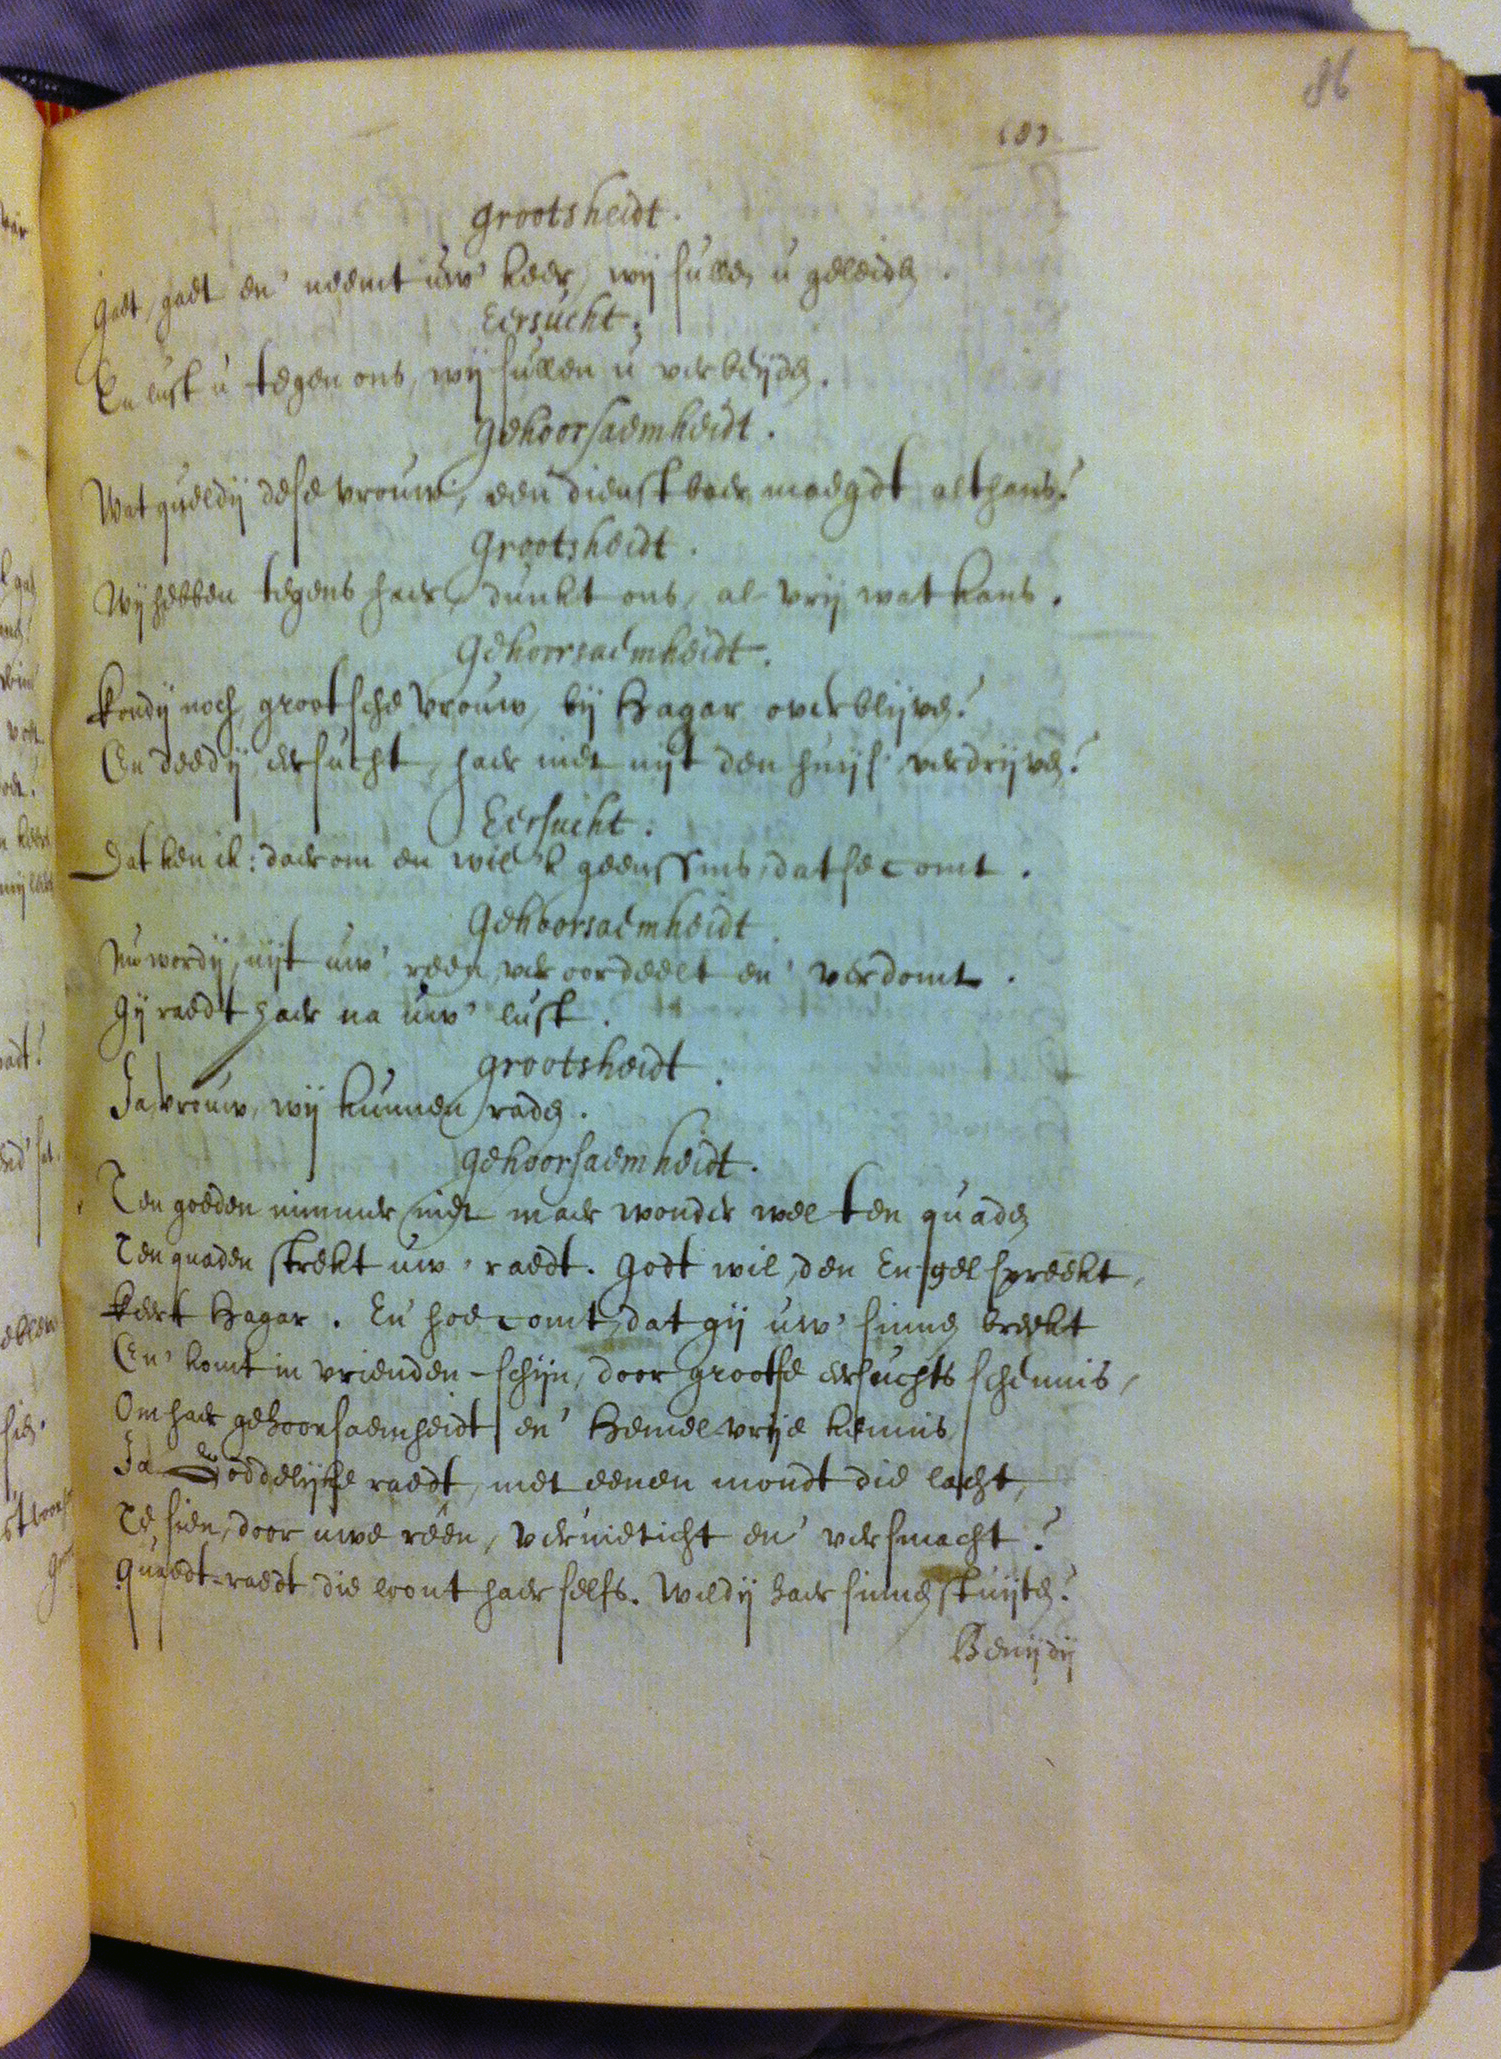 86
181
grootsheidt.
gaet, gaet en' neemt uw' keer, wij sullen u geleiden.
Eersucht.
En lust u tegen ons, wij sullen u verbeijden.
gehoorsaemheidt.
Wat queldij dese vrouw, een dienstbaer maegdt althans?
grootsheidt.
Wij hebben tegens haer, dunkt ons, al vrij wat kans.
Gehoorsaemheidt.
Kondij noch, grootsche vrouw, bij Hagar overblijven?
En deedij, eersucht, haer niet uijt den huijs verdrijven?
Eersucht.
Dat ken ik: daerom en wil 'k geenssins, dat se comt.
Gehoorsaemheidt.
Nu wordij, uijt uw' reen, veroordeelt en' verdomt.
Gij raedt haer na uw' lust.
grootsheidt.
Ja vrouw, wij kunnen raden.
gehoorsaemheidt.
Ten goeden nimmer niet maer wonder wel ten quaden
Ten quaden strekt uw' raedt. Godt wil, den Engel spreekt,
keert Hagar. En hoe comt, dat gij uw' sinnen breekt
En' komt in vrienden-schijn, door grootse eersuchts schennis,
Om haer gehoorsaemheidt en' Hemel-vrije kennis
Ja Goddelijke raedt, met eenen mondt die lacht,
Te sien, door uwe reên, vernieticht en' versmacht?
Quaedt-raedt die loont haer selfs. Wildij haer sinnen stuijten?
Benijdij